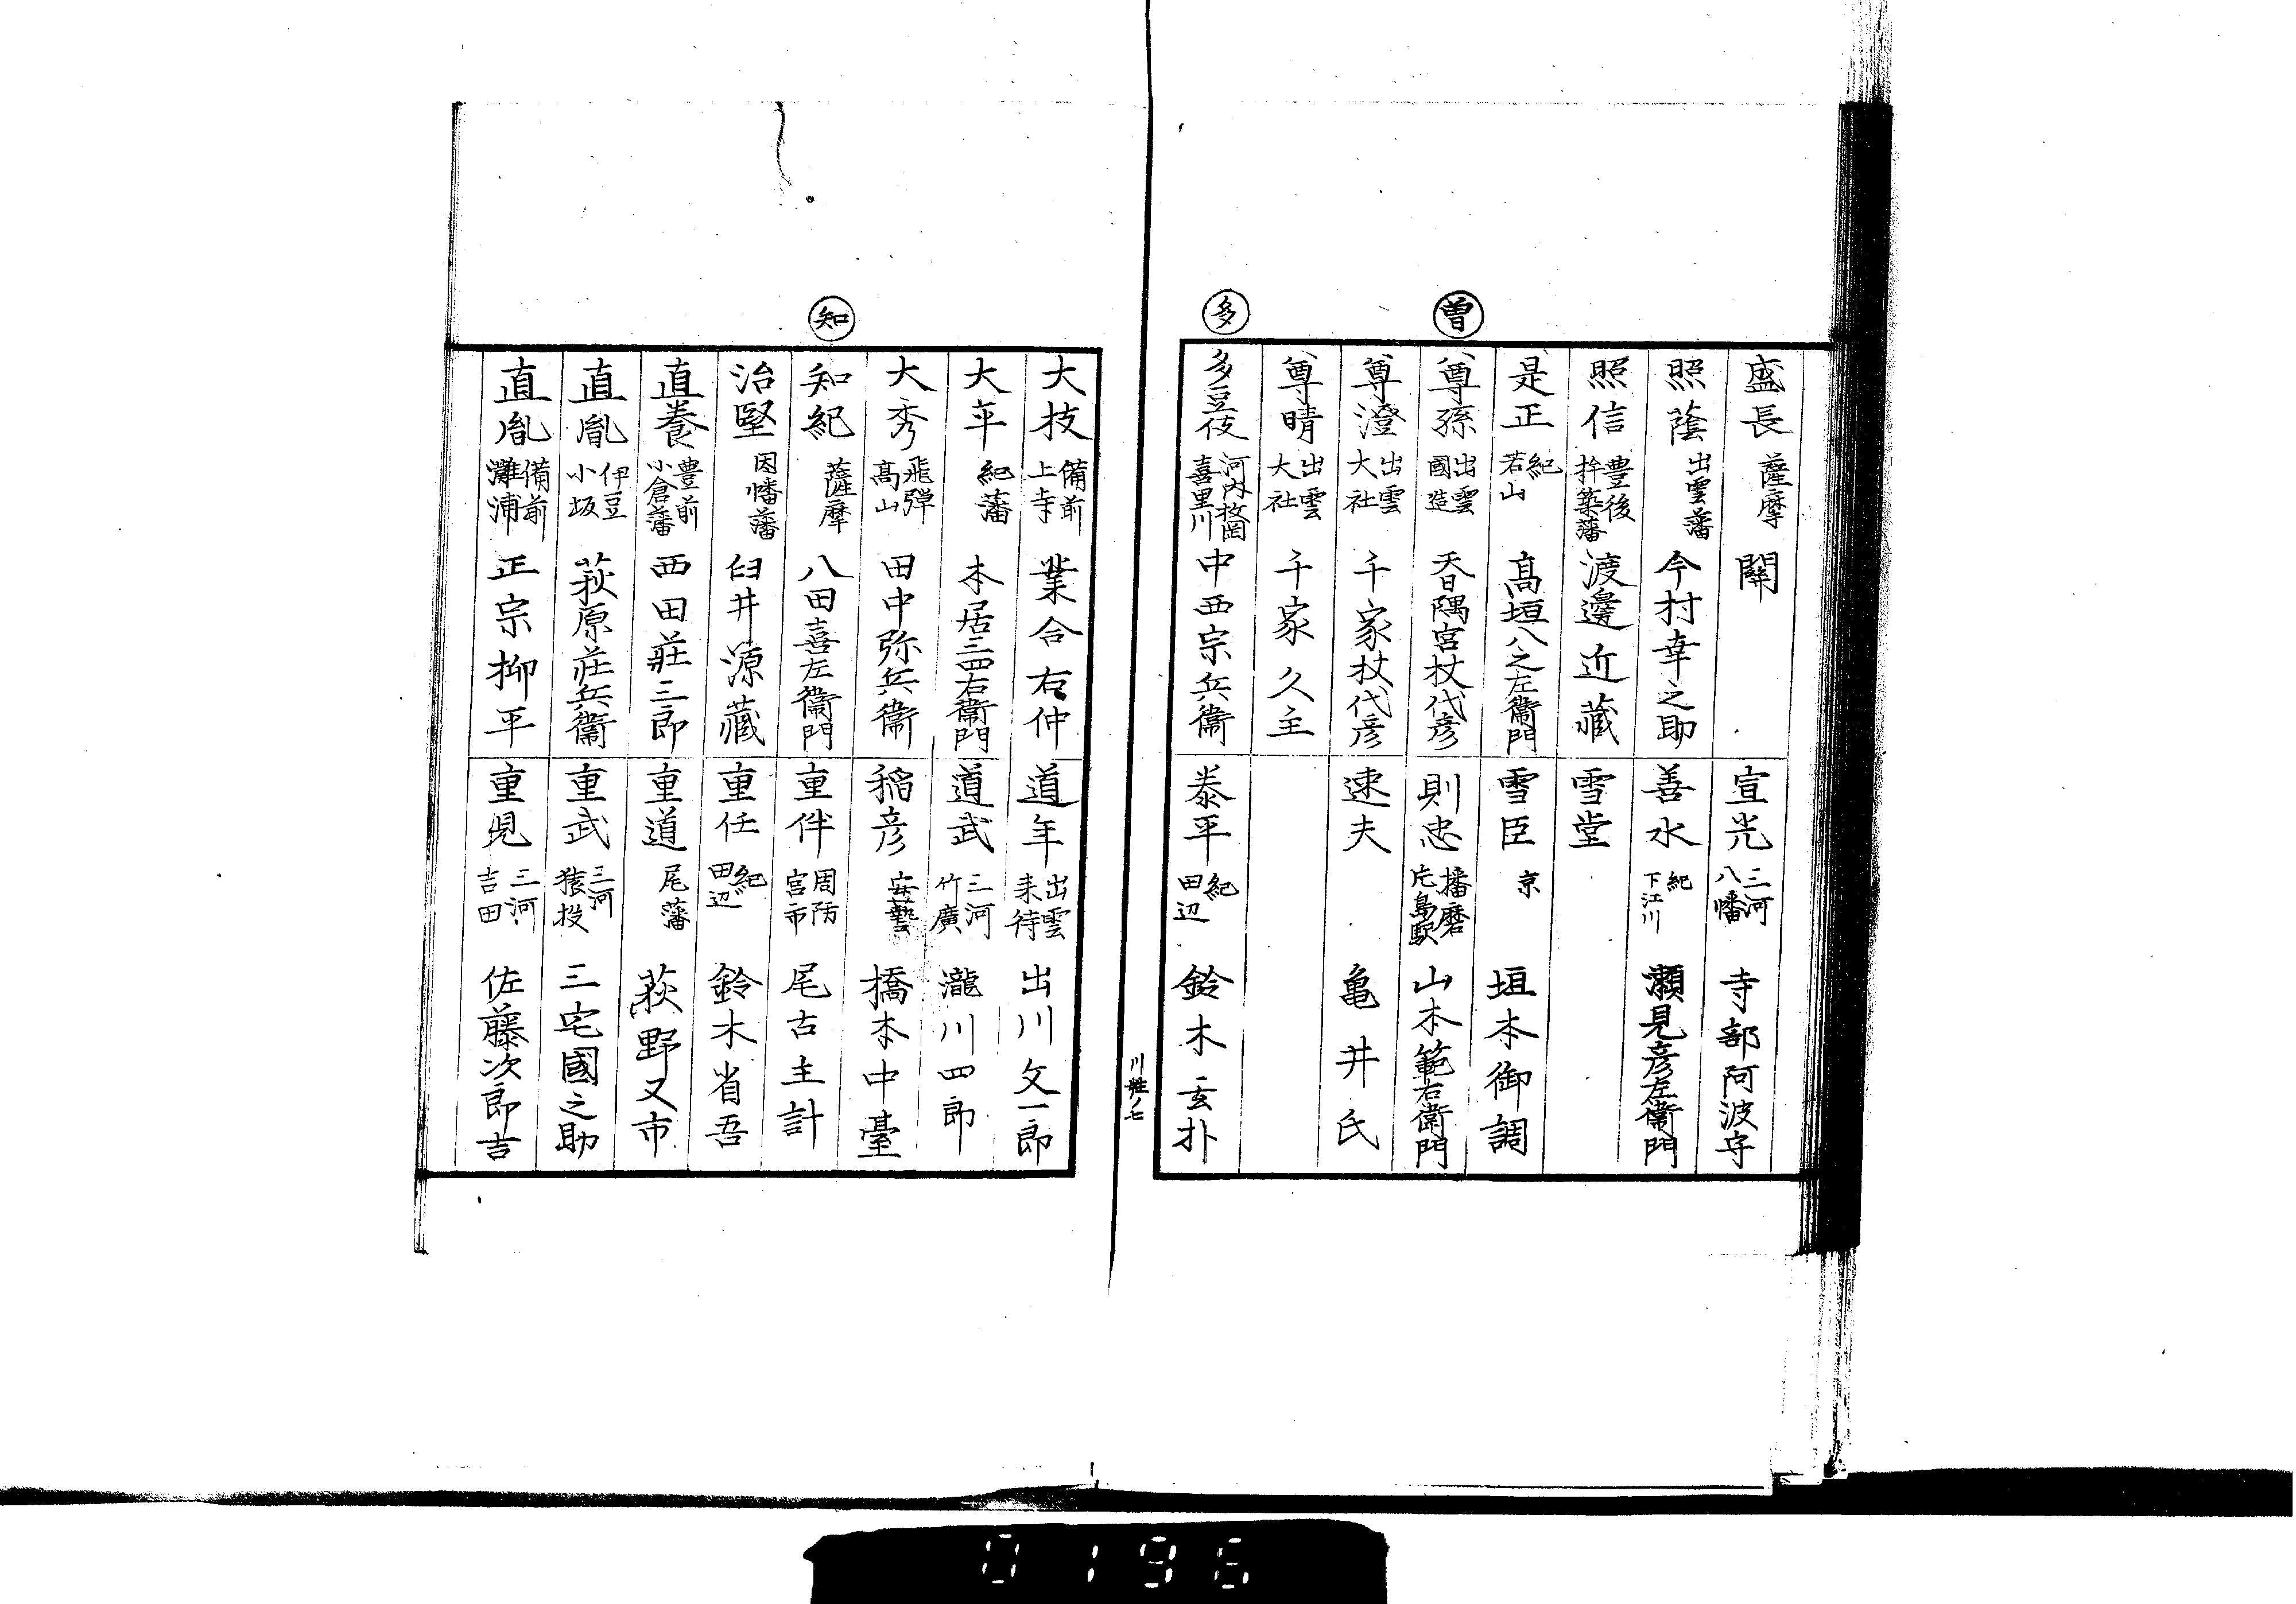 盛長 薩摩 關
照蔭 出雲藩 今村幸之助
照信 豊後杵築藩 渡邊近藏
曽
是正 紀若山 髙垣八之左衞門
尊孫 出雲國造 天日隅宮杖代彦
尊澄 出雲大社 千家杖代彦
尊晴 出雲大社 千家久主
多
多豆伎 河内牧岡喜里川 中西宗兵衞
宣光 三河八幡 寺部阿波守
善水 紀下江川 瀬見彦左衞門
雪堂
雪臣 京 垣本御調
則忠 播磨片島駅 山本範右衞門
速夫 亀井氏
泰平 紀田辺 鈴木玄扑
大技 備前上寺 業合右仲
大平 紀藩 本居三四右衞門
大秀 飛弾髙山 田中弥兵衞
知
知紀 薩摩 八田喜左衞門
治堅 因幡藩 臼井源藏
直養 豊前小倉藩 西田莊三郎
直胤 伊豆小坂 萩原莊兵衞
直胤 備前灘浦 正宗抑平
道年 出雲来待 出川文一郎
道武 三河竹廣 瀧川四郎
稲彦 安藝 橋本中臺
重伴 周防宮市 尾古主計
重任 紀田辺 鈴木省吾
重道 尾藩 萩野又市
重武 三河猿投 三宅國之助
重見 三河吉田 佐藤次郎吉
0196